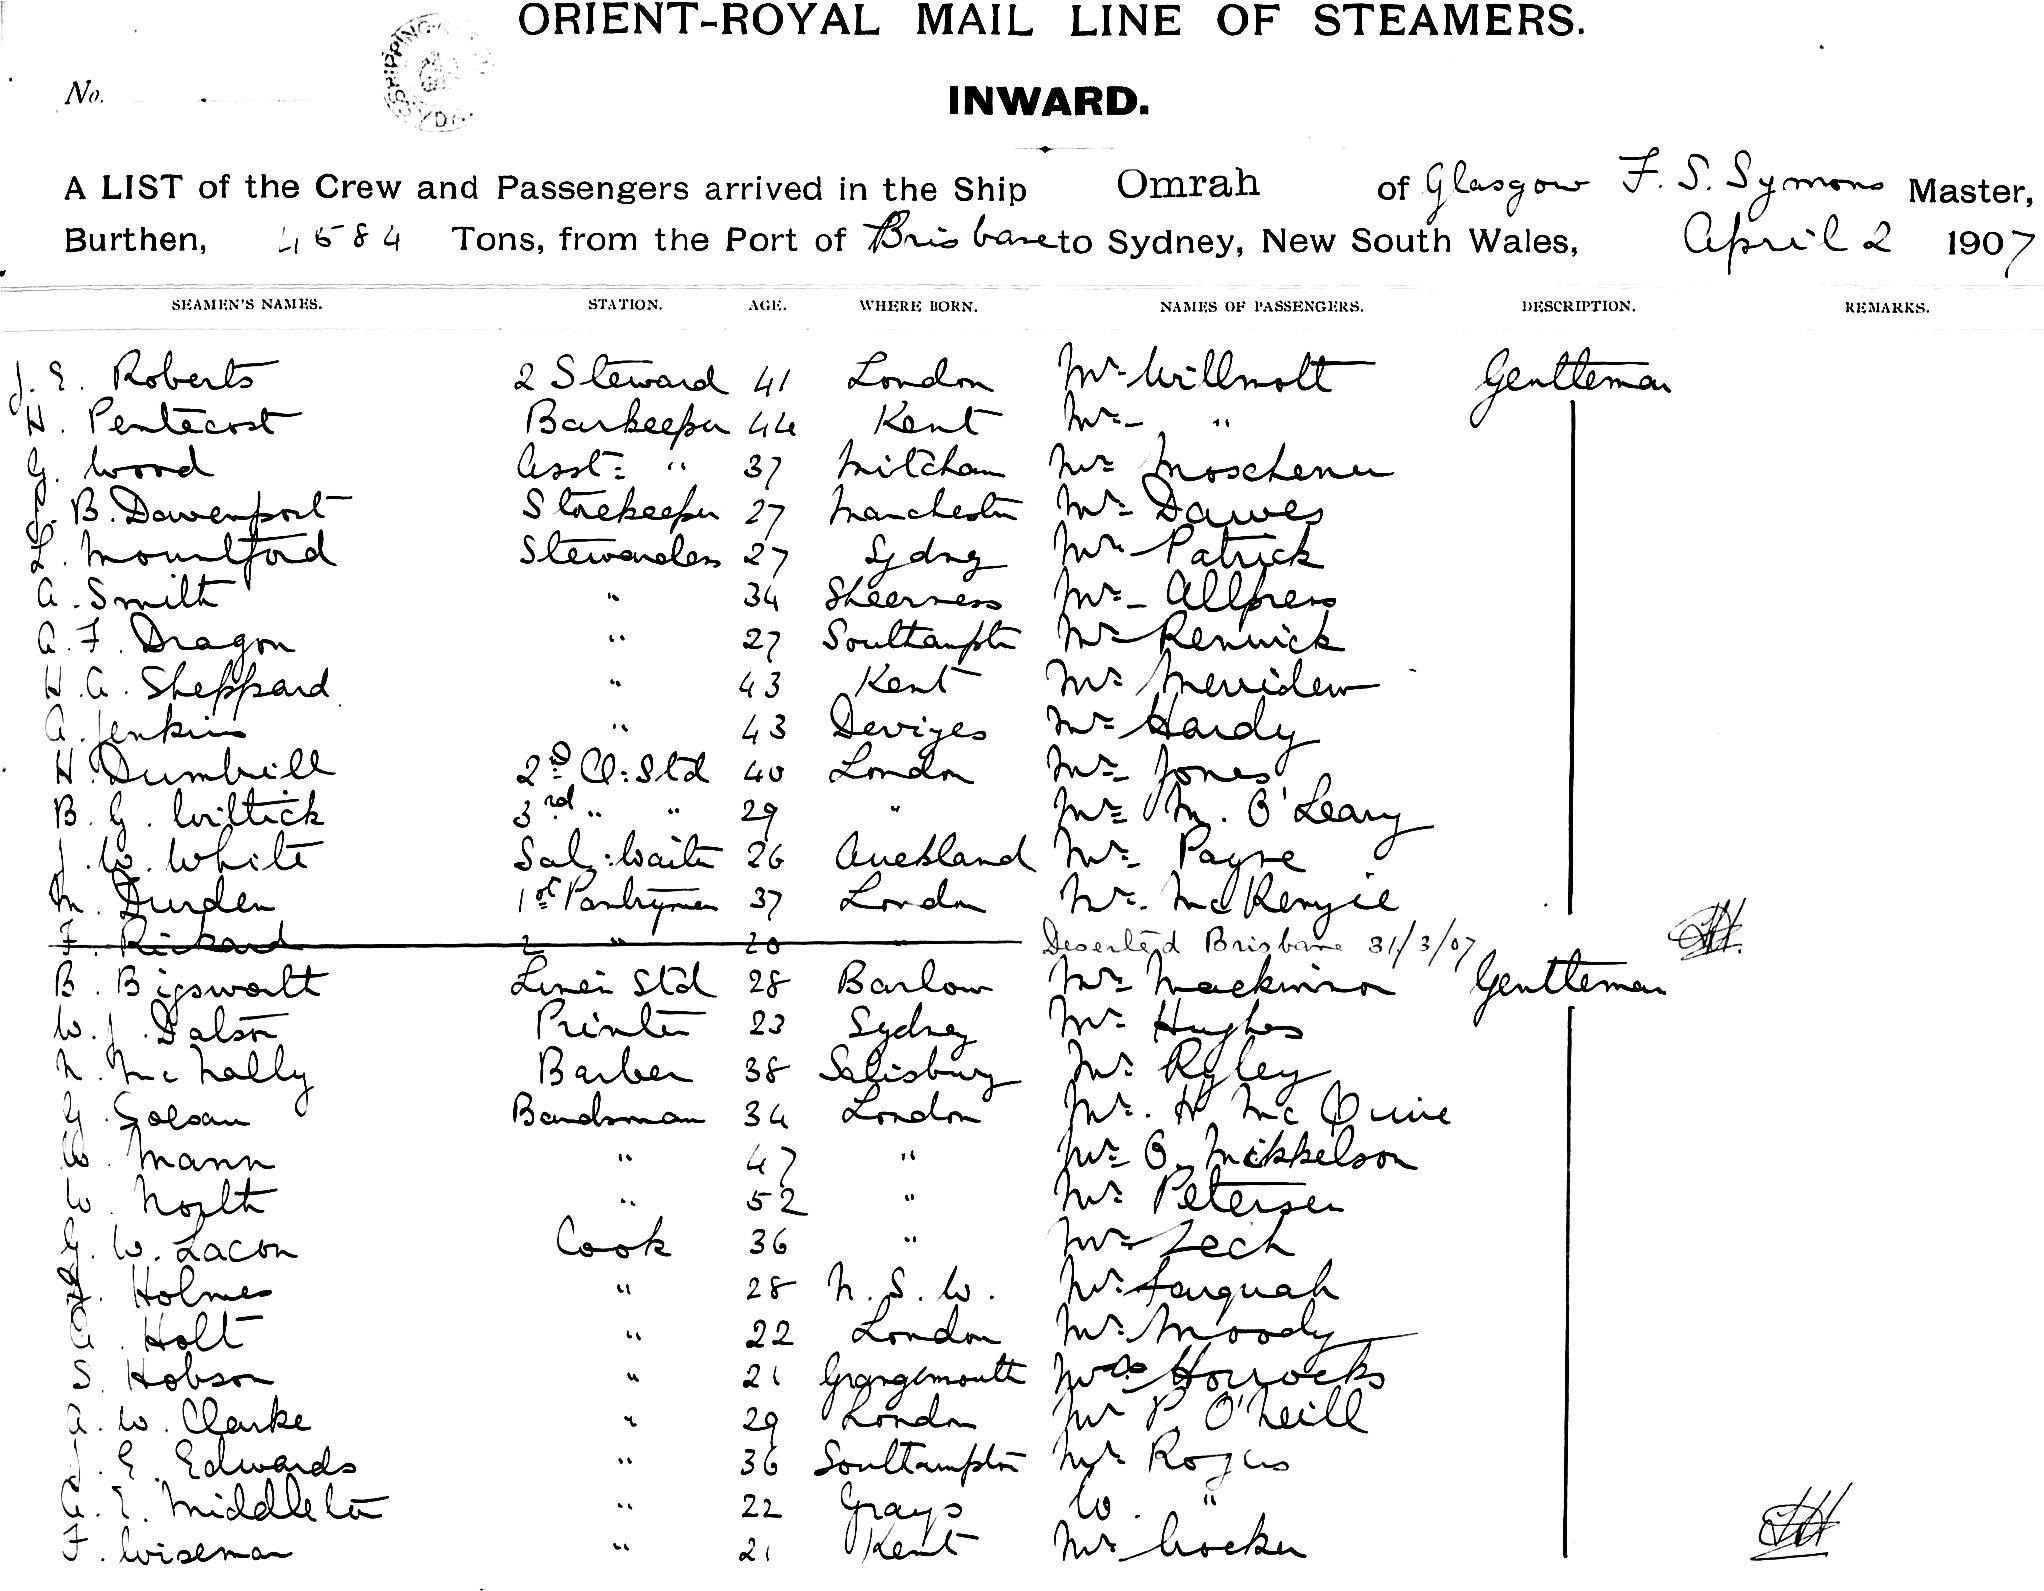 ORIENT-ROYAL MAIL LINE OF STEAMERS.
No.
INWARD.
A LIST of the Crew and Passengers arrived in the Ship Omrah of Glasgow F. S. Symons Master,
Burthen, 4584 Tons, from the Port of Brisbane to Sydney, New South Wales, April 2 1907
SEAMEN'S NAMES. STATION. AGE. WHERE BORN. NAMES OF PASSENGERS. DESCRIPTION. REMARKS.
J. E. Roberts 2 Steward 41 London Mr Willmott Gentleman
H. Pentecost Barkeeper 44 Kent Mr "
G. Wood Asst: " 37 Mitcham Mr
B. Davenport Storekeeper 27 Manchester Mr Dawes
L. Mountford Stewardess 27 Sydney Mr Patrick
A. Smith " 34 Sheerness Mr Allpress
A. F. Dragon " 27 Southampton Mr Renwick
H. A. Sheppard " 43 Kent Mr Merridew
A. Jenkins " 43 Devizes Mr Hardy
H. Dumbrill 2nd Cl: Std 40 London Mr Jones
B. G. Wiltick 3rd " " 29 " Mr M. O'Leary
J. W. White Sal: Waiter 26 Auckland Mr Payne
M. Durden 1st Pantryman 37 London Mr. McKenzie
F. Rickard 2 " 20 " Deserted Brisbane 31/3/07
B. Bigsworth Linen Std 28 Barlow Mr Mackinnon Gentleman
W. J. Dalson Printer 23 Sydney Mr Hughes
N. McNally Barber 38 Salisbury Mr Ryley
G. Bandsman 34 London Mr. H McQuire
W. Mann " 47 " Mr O. Mikkelson
W. North " 52 " Mr Petersen
G. W. Lacon Cook 36 " Mr Zech
F. Holmes " 28 N. S. W. Mr Farquah
A. Holt " 22 London Mr Moody
S. Hobson " 21 Grangemouth Horrocks
A. W. Clarke " 29 London Mr P. O'Neill
J. E. Edwards " 36 Southampton Mr Rogers
A. E. Middleton " 22 Grays W. "
F. Wiseman " 21 Kent Mr Crocker